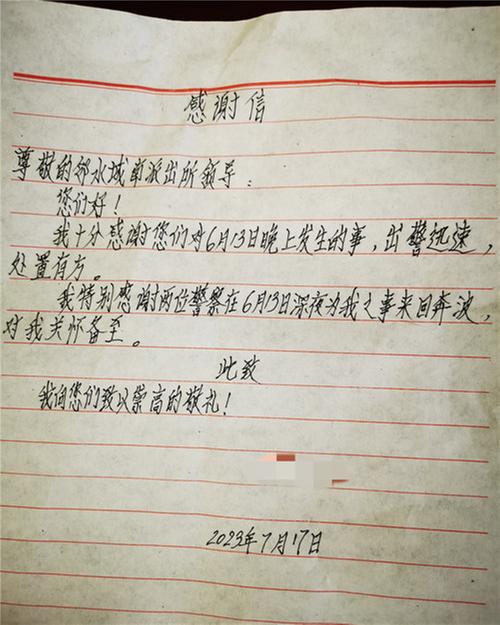 感谢信
尊敬的邻水城南派出所领导：
您们好！
我十分感谢您们对6月13日晚上发生的事，出警迅速，
处置有方。
我特别感谢两位警察在6月13日深夜为我之事来回奔波，
对我关怀备至。
此致
我向您们致以崇高的敬礼！
2023年7月17日